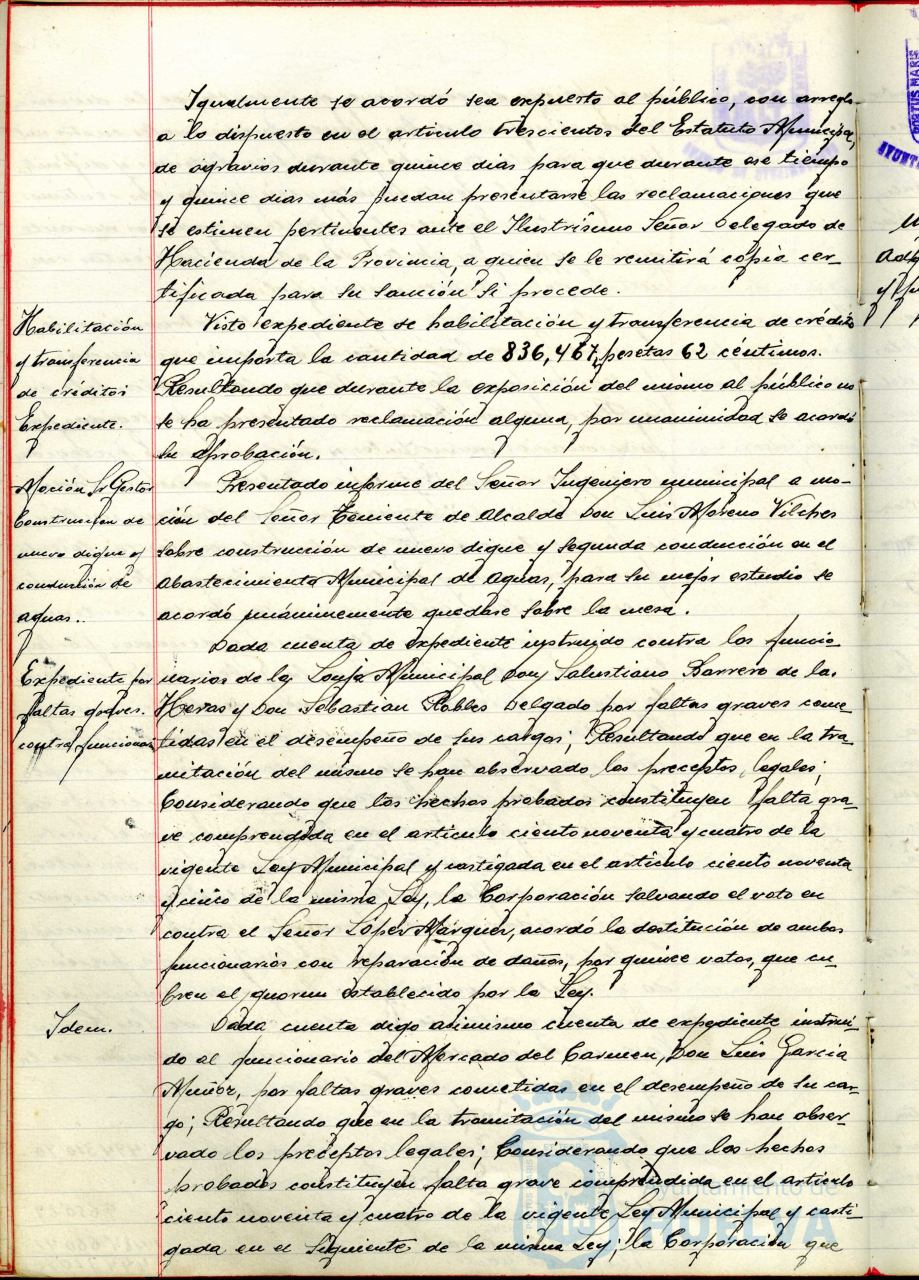 Igualmente se acordó sea expuesto al público, con arreglo
a lo dispuesto en el artículo trescientos del Estatuto Municipal,
de agravios durante quince dias para que durante ese tiempo
y quince dias más puedan presentarse las reclamaciones que
se estimen pertinentes ante el Ilustrísimo Señor Delegado de
Hacienda de la Provincia, a quien se le remitirá copia cer-
tificada para su sanción si procede.
Habilitación
y transferencia
de créditos
Expediente.
Visto expediente de habilitación y transferencia de crédito
que importa la cantidad de 836,467, pesetas 62 céntimos.
Resultando que durante la exposición del mismo al público no
se ha presentado reclamación alguna, por unanimidad se acordó
su aprobación.
Moción Sr Gestor
Construccion de
nuevo dique y
conducción de
aguas..
Presentado informe del Señor Ingeniero municipal a mo-
ción del Señor Teniente de Alcalde Don Luis Moreno Vilches
sobre construcción de nuevo dique y segunda conducción en el
abastecimiento Municipal de aguas, para su mejor estudio se
acordó unánimemente quedase sobre la mesa.
Expediente por
faltas graves.
contra funcionar
Dada cuenta de expediente instruido contra los funcio-
narios de la Lonja Municipal Don Salustiano Barrero de las
Heras y Don Sebastian Robles Delgado por faltas graves come-
tidas en el desempeño de sus cargos; Resultando que en la tra-
mitación del mismo se han observado los preceptos legales;
Considerando que los hechos probados constituyen falta gra-
ve comprendida en el artículo ciento noventa y cuatro de la
vigente Ley Municipal y castigada en el artículo ciento noventa
y cinco de la misma Ley, la Corporación salvando el voto en
contra el Señor López Márquez, acordó la destitución de ambos
funcionarios con reparación de daños, por quince votos, que cu-
bren el quorum establecido por la Ley.
Idem.
Dada cuenta digo asimismo cuenta de expediente instrui-
do al funcionario del Mercado del Carmen, Don Luis Garcia
Muñoz, por faltas graves cometidas en el desempeño de su car-
go; Resultando que en la tramitación del mismo se han obser-
vado los preceptos legales; Considerando que los hechos
probados constituyen falta grave comprendida en el articulo
ciento noventa y cuatro de la vigente Ley Municipal y casti-
gada en el siguiente de la misma Ley; la Corporación que
Ayuntamiento de
HUELVA